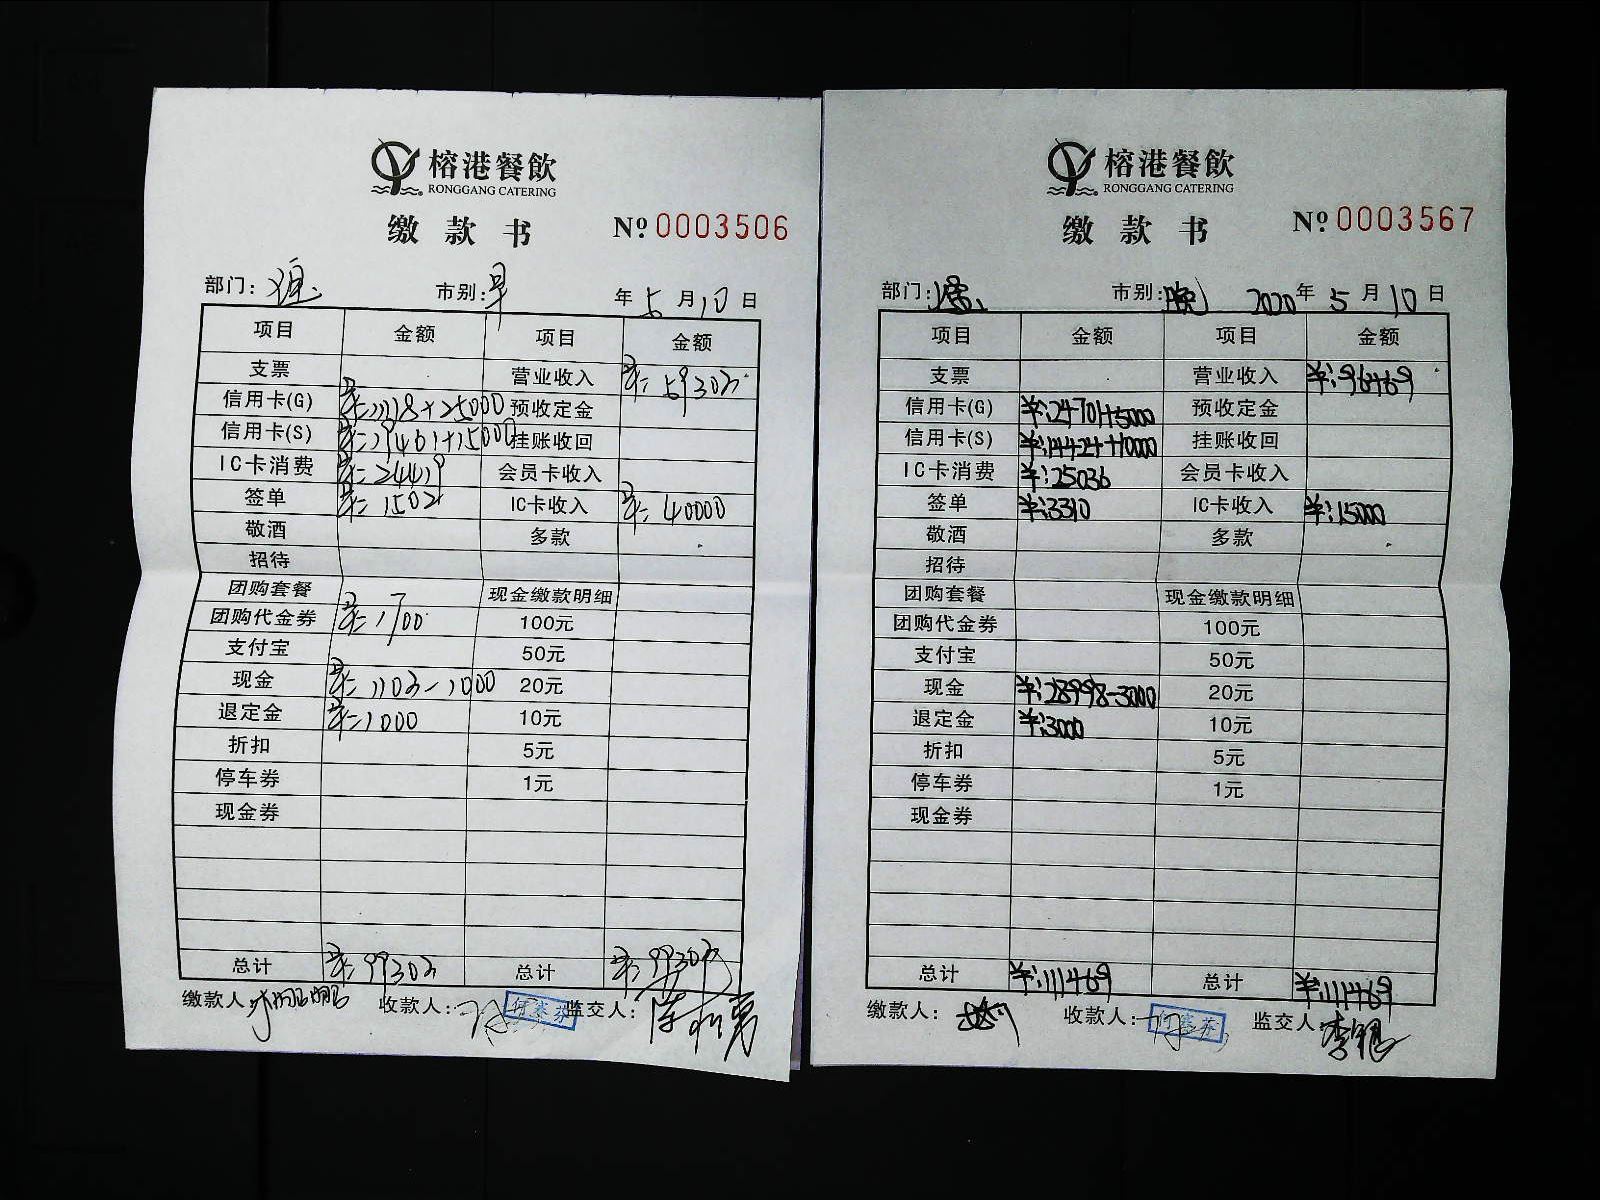 榕港餐飲
RONGGANG CATERING
缴款书 Nº 0003506
部门: 市别:早 年5月10日
项目 金额 项目 金额
支票 营业收入 ¥:59303
信用卡(G) ¥:11118+25000 预收定金
信用卡(S) ¥:19461+15000 挂账收回
IC卡消费 ¥:24419 会员卡收入
签单 ¥:1502 IC卡收入 ¥:40000
敬酒 多款
招待
团购套餐 现金缴款明细
团购代金券 ¥:1700 100元
支付宝 50元
现金 ¥:1103-1000 20元
退定金 ¥:1000 10元
折扣 5元
停车券 1元
现金券
总计 ¥:99303 总计 ¥:99303
缴款人: 收款人: 何赛芬 监交人:
榕港餐飲
RONGGANG CATERING
缴款书 Nº 0003567
部门: 市别:晚 2020年5月10日
项目 金额 项目 金额
支票 营业收入 ¥:96469
信用卡(G) ¥:24701+5000 预收定金
信用卡(S) ¥:14424+10000 挂账收回
IC卡消费 ¥:25036 会员卡收入
签单 ¥:3310 IC卡收入 ¥:15000
敬酒 多款
招待
团购套餐 现金缴款明细
团购代金券 100元
支付宝 50元
现金 ¥:28998-3000 20元
退定金 ¥:3000 10元
折扣 5元
停车券 1元
现金券
总计 ¥:111469 总计 ¥:111469
缴款人: 收款人: 何赛芬 监交人: